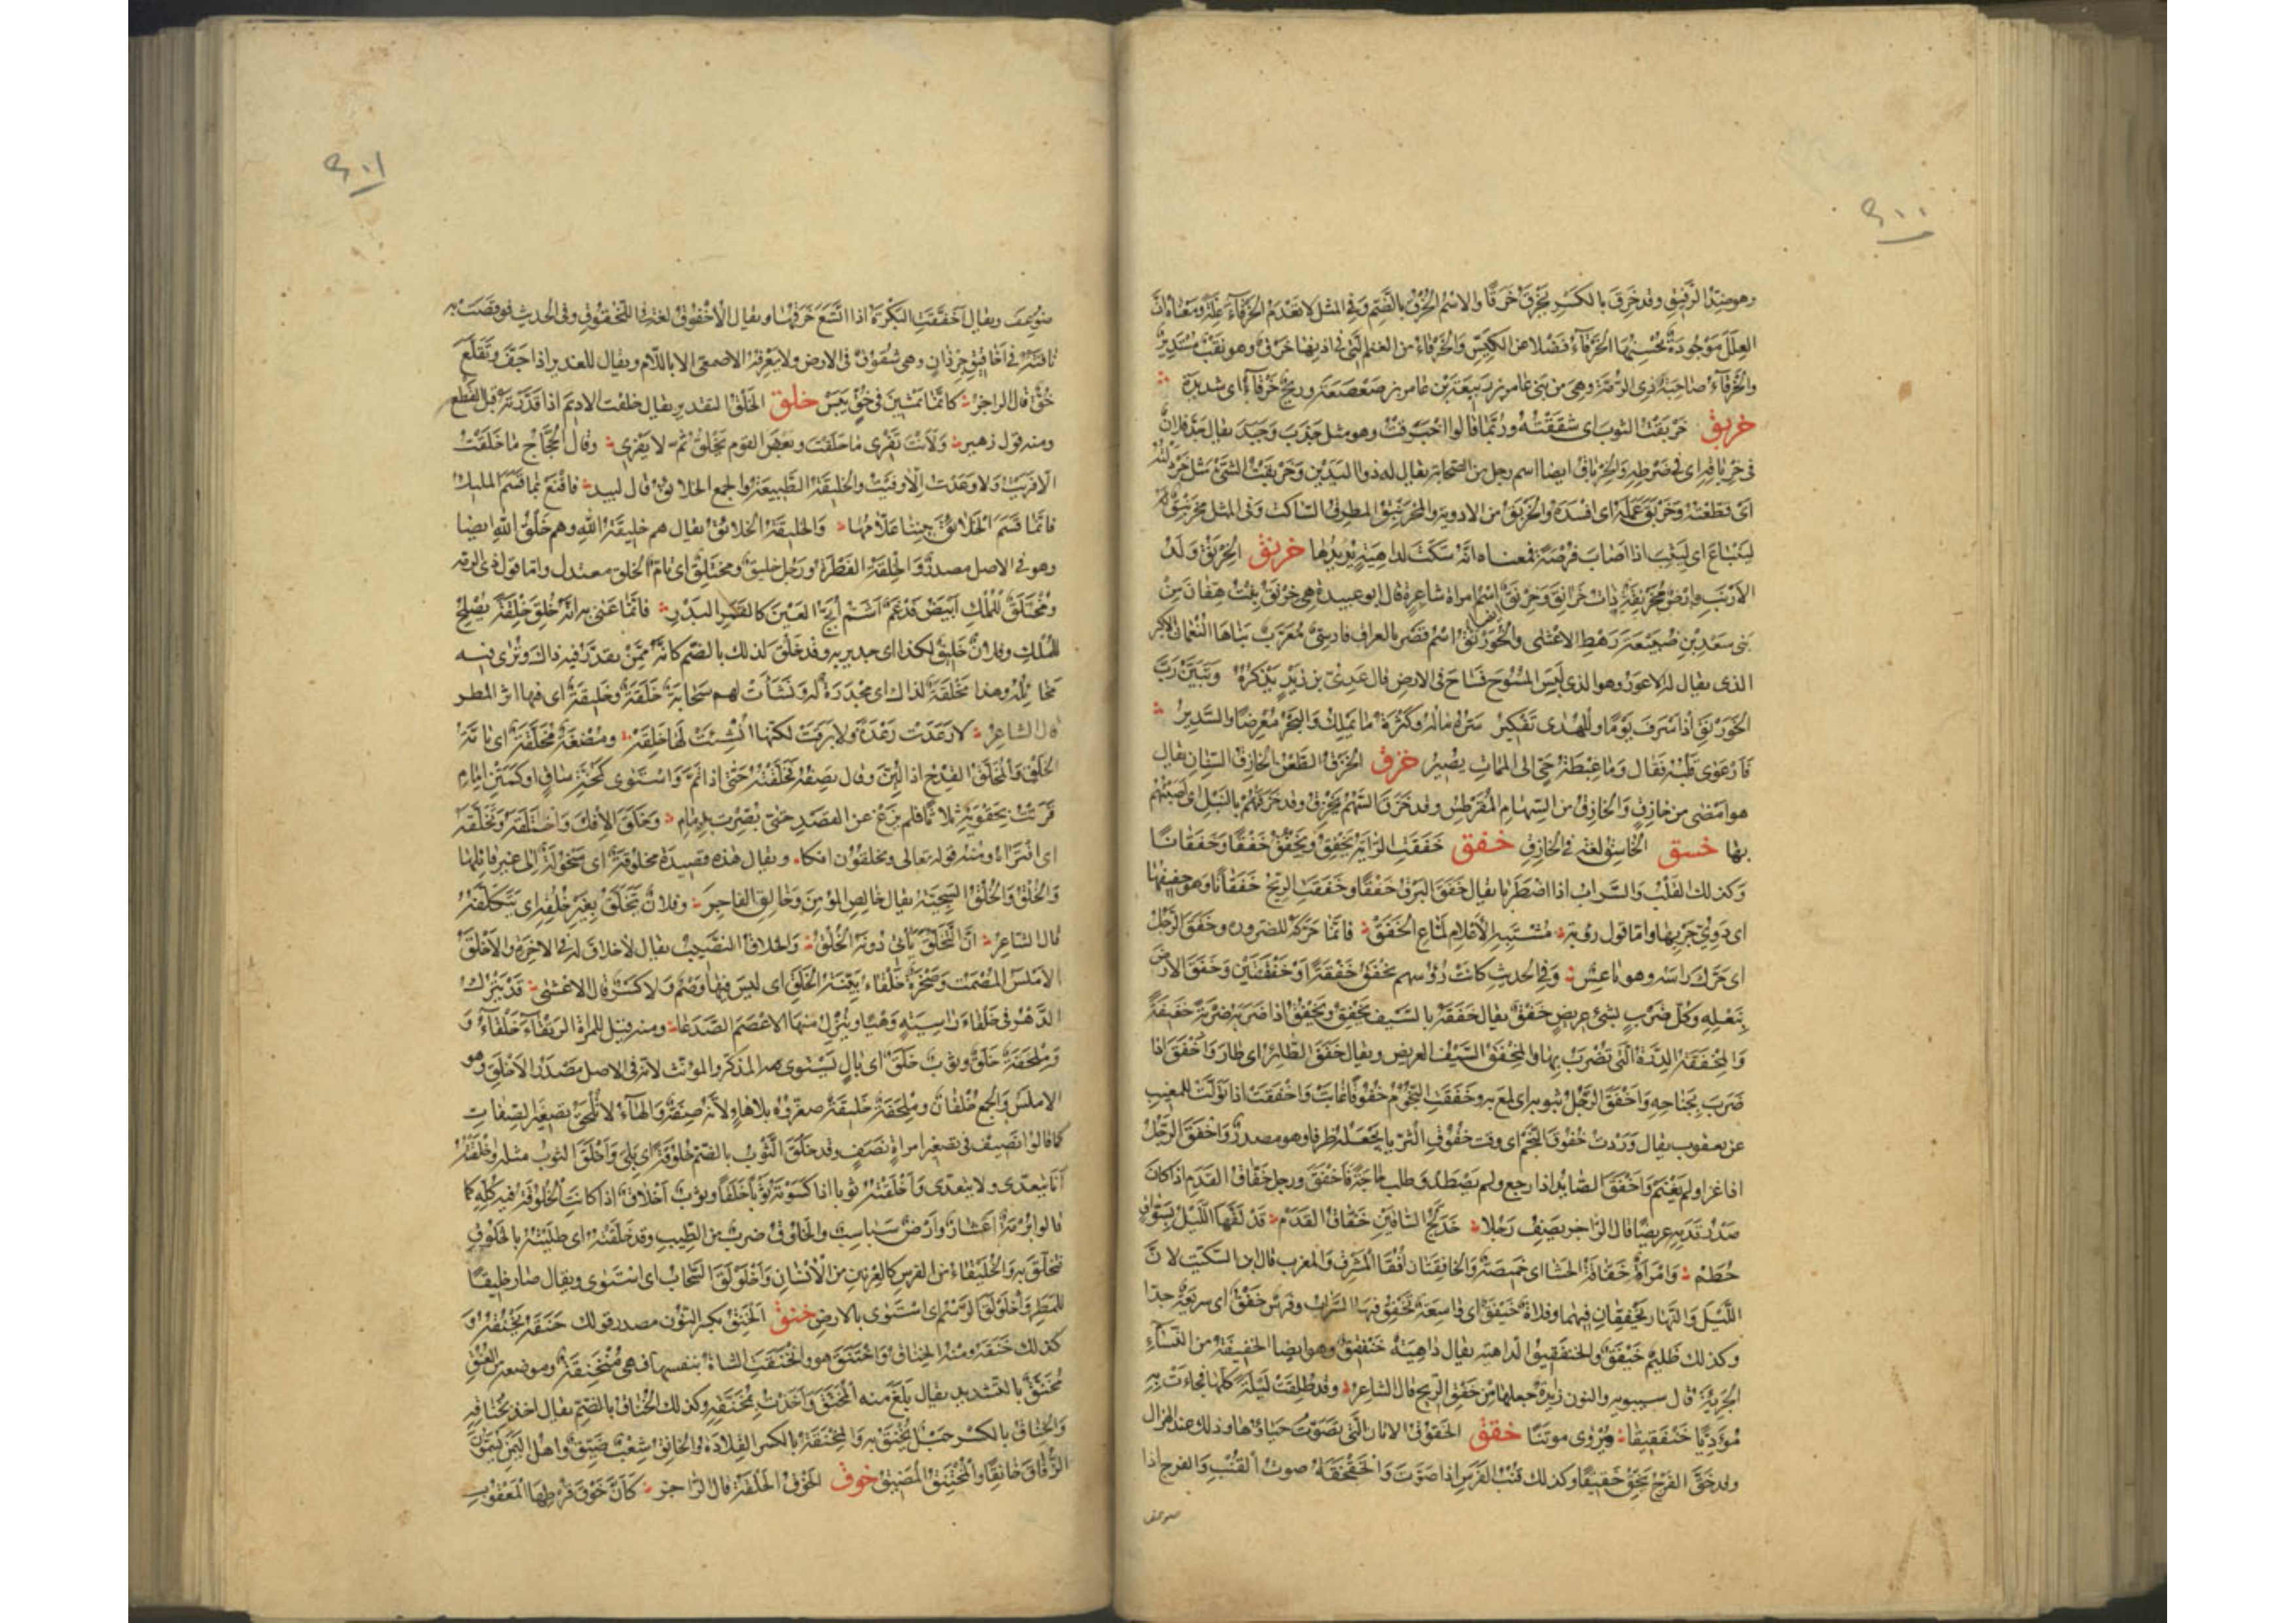 ٩٠٠
وهو ضِدُّ الرَّفيق وقد خَرِقَ بالكَسرِ يَخْرَقُ خَرَقًا والاسم الخُرْقُ بالضّم وفي المثل لا تَعْدَمُ الخَرقاءُ عِلّةً ومعناه انّ
العِلَلَ مَوْجُودَةٌ تُحْسِنُها الخَرْقاءُ فَضْلا عن الكَيِّس والخَرْقاءُ من الغنم الّتي في اذنها خَرق وهو نَقْبٌ مُسْتَدِيرٌ
والخَرْقاءُ صاحِبَةُ ذي الرُّمَّة وهي من بَني عامر بن رَبيعَة بن عامر بن صَعْصَعَة وريحٌ خَرْقاءُ اى شديدة
خربق خَرْبَقْتُ الثوبَ اى شَقَقْتُه ورُبَّما قالوا خَبْرَقْتُ وهو مثل جَذَبَ وجَبَذَ يقال جَدّ فلانٌ
في خِرْباقِه اى في ضَرطه والخِرْباقُ ايضا اسم رجل من الصحابة يقال له ذو اليَدَيْنِ وخَرْبَقْتُ الشيءَ مثل خَرْدَلْتُه
اى قطَعْتُه وخَرْبَقَ عَمَلَه اى افسَدَه والخَرْبَقُ من الادوية والمُخْرَنْبِقُ المطرِقُ السّاكت وفي المثل مُخْرَنْبِقٌ
ليَنْباعَ اى ليَثِبَ اذا اصَابَ فُرْصَةً فمعناه انّه سَكَتَ لداهِيةٍ يُريدُها خرنق الخِرْنِقُ وَلَدُ
الأرنب وارضٌ مُخَرْنِقَةٌ ذات خَرانِقَ وخِرْنِقُ اسْمُ امراة شاعِرةٍ قال ابو عبيدة هى خِرْنِقُ بنتُ هِفّانَ مِن
بني سَعْد بن ضُبَيْعَةَ رَهْطِ الاعْشى والخَوَرْنَقُ ايضا اسم قَصْرٍ بالعراق فارسِيٌّ مُعَرَّبٌ بَناها النُّعمانُ الاكبر
الذى يقال له الاعوَر وهو الذى لبِسَ المُسُوحَ فَسَاحَ في الارض قال عَدِيُّ بن زيد يَذْكُرُهُ وتَبَيَّنْ رَبَّ
الخَوَرْنَقِ اذ اشرَفَ يَوْمًا وللهُدى تَفْكِيرُ سَرّهُ مالُهُ وكَثْرَةُ ما يَمْلِكُ والبَحْرُ مُعْرِضًا والسَّدِيرُ
فَارْعَوَى قَلْبُه فَقَال وما غِبْطَةُ حَيٍّ الى المَماتِ يَصِيرُ خزق الخَزْقُ الطَّعْنُ والخازِقُ السِّنان يقال
هو امْضى من خازِق والخازِقُ من السِّهام المُقَرْطِسُ وقد خَزَقَ السَّهمُ يَخْزِقُ وقد خَزَقْتُهم بالنَّبْلِ اى اصَبْتُهم
بها خسق الخاسِقُ لغة في الخازِقِ خفق خَفَقَت الرّايَةُ تَخْفِقُ وتَخْفُقُ خَفْقًا وخَفَقانًا
وكذلك القَلْبُ والسَّراب اذا اضطَرَبا يقال خَفَقَ البَرقُ خَفْقًا وخَفَقَت الرِّيحُ خَفَقانًا وهو حفيفُها
اى دَوِيُّ جَرْيِها وامّا قول رؤبة مُشْتَبِهِ الأعْلامِ لمَّاعِ الخَفَقْ فانّما حَرَّكَه للضرورة وخَفَقَ الرَّجُلُ
اى حَرَّكَ راسَه وهو ناعِسٌ وفي الحديث كانت رُؤسهم تَخْفِقُ خَفْقَةً او خَفْقَتَيْنِ وخَفَقَ الارضَ
بنَعْلِهِ وكلُّ ضَرْبٍ بشيءٍ عريضٍ خَفْقٌ يقال خَفَقَهُ بالسَّيف يَخْفِقُ ويَخْفُقُ اذا ضَرَبَه ضَرْبَةً خَفيفَةً
والمِخْفَقَةُ الدِّرَّةُ الّتي تُضْرَبُ بها والمِخْفَقُ السَّيْفُ العريض ويقال خَفَقَ الطّائِرُ اى طار واَخْفَقَ اذا
ضَرَبَ بجَناحِه واَخْفَقَ الرَّجُلُ بثوبه اى لمَعَ به وخَفَقَت النُّجُومُ خُفُوقًا غابَتْ واخْفَقَتْ اذا تَوَلَّتْ للمَغيب
عن يعقوب يقال وَرَدْتُ خُفُوقَ النَّجْمِ اى وقت خُفُوقِ الثُّرَيّا يجْعَلُهُ ظرفا وهو مصدر واخفَقَ الرَّجُلُ
اذا غزا ولم يَغْنَمْ واخْفَقَ الصّائدُ اذا رجع ولم يَصْطَدْ وطلب حاجَةً فاَخْفَقَ ورجل خَفّاقُ القَدَمِ اذا كان
صَدْرُ قَدَمِهِ عريضًا قال الرّاجز يصف رَجُلا خَدَلَّجُ السّاقَيْنِ خَفّاقُ القَدَمْ قَدْ لَفَّها اللَّيْلُ بِسَوّاقٍ
حُطَمْ وامْرأةٌ خَفّاقَةُ الحَشا اى خَميصَةٌ والخافِقانِ اُفُقا المَشرِق والمغرب قال ابن السّكّيت لانّ
اللَّيْلَ والنَّهارَ يَخْفِقانِ فيهما وفلاةٌ خَيْفَقٌ اى واسِعَةٌ تَخْفِقُ فيها السَّرابُ وفرس خَفِقٌ اى سريعَةٌ جدّا
وكذلك ظَليمٌ خَيْفَقٌ والخنفَقيقُ الداهية يقال داهِيَةٌ خَنْفَقِيقٌ وهو ايضا الخفيفَةُ من النساءِ
الجَرِيئَةُ قال سيبويه والنون زائدةٌ جعلها من خَفْقِ الرّيح قال الشاعر وقد طَلَقَتْ لَيْلَةً كلَّها فجاءَتْ بِه
مُؤْدَنًا خَنْفَقِيقًا ويُرْوى موتَنًا خقق الخَقُوقُ الاتان الّتي يُصَوِّتُ حَياؤُها وذلك عند الهُزال
وقد خَقَّ الفَرْجُ يَخِقُّ خَقِيقًا وكذلك قُنْبُ الفَرَسِ اذا صَوَّتَ والخَقْخَقَةُ صوت القُنْبِ والفرج اذا
٩٠١
ضُوعِفَ ويقال اَخَقَّت البَكْرَةُ اذا اتَّسَعَ خَرقُها ويقال الأُخْقُوقُ لغة في اللُّخْقُوقِ وفي الحديث فوقَصَتْ به
ناقَتُهُ في اَخاقِيقِ جِرْذانٍ وهى شُقُوقٌ في الارض ولا يعرفه الاصمعى الا باللّام ويقال للغدير اذا جَفّ وتَقَلَّعَ
خُقٌّ قال الراجز كانّما يَمْشِينَ في خُقٍّ يَبَسْ خلق الخَلْقُ التقدير يقال خلقت الاديمَ اذا قَدَّرْتَهُ قَبْلَ القَطْع
ومنه قول زهير ولَأَنْتَ تَفْرِي ما خَلَقْتَ وبَعْضُ القوم يَخْلُقُ ثم لا يَفْرِي وقال الحَجّاج ما خَلَقْتُ
الّا فَرَيْتُ ولا وعَدْتُ الّا وفيْتُ والخَليقَةُ الطَّبيعَةُ والجمع الخلائقُ قال لبيد فاقْنَعْ بما قَسَمَ المليكُ
فانّما قَسَمَ الخلائقَ بيننا عَلّامُها والخليقَةُ الخلائقُ يقال هم خليقَةُ اللهِ وهم خَلْقُ اللهِ ايضا
وهو في الاصل مصدرٌ والخِلْقَةُ الفِطْرَةُ ورَجُل خليقٌ ومُخْتَلَقٌ اى تامّ الخَلْق معتدل وامّا قول ذى الرمّة
ومُخْتَلَقٌ للمُلْكِ اَبْيَضُ فَدْغَمٌ اَشَمُّ اَبَجُّ العَيْنِ كالقَمَرِ البَدْرِ فانّما عَنى به انّه خُلِقَ خِلْقَةً يَصْلُحُ
للمُلكِ وفلانٌ خَليقٌ لكذا اى جدير به وقد خَلُقَ لذلك بالضّم كانّه ممّن يقدَّرُ فيه ذاك وتُرى فيه
مَخائِلُهُ وهذا مَخْلَقَةٌ لذاك اى مَجْدَرَةٌ له ونَشَأَتْ لهم سَحابَةٌ خَلِقَةٌ وخَليقَةٌ اى فيها اثر المطر
قال الشاعر لا رَعَدَتْ رَعْدَةٌ ولا بَرَقَتْ لكنّها اُنْشِئَتْ لَها خَلِقَةْ ومُضْغَةٌ مُخَلَّقَةٌ اى تامّة
الخَلْقِ والمُخَلَّقُ القِدْحُ اذا لُيِّنَ وقال يصفه فخَلَّقْتُهُ حَتّى اذا تَمَّ واسْتَوى كمُخَّةِ ساقٍ او كمَتْنِ امامِ
قَرَنْتُ بحَقْوَيْهِ ثلاثًا فلم يَزِغْ عن القصدِ حتى بُصِّرَتْ بدِمامِ وخَلَقَ الإفْكَ واخْتَلَقَه وتَخَلَّقَه
اى افتراه ومنه قوله تعالى وتخلقون افكا ويقال هذه قصيدة مخلوقةٌ اى مَنْحُولَةٌ الى غير قائِلِها
والخُلْقُ والخُلُقُ السَّجِيَّةُ يقال خالِصِ المؤمِنَ وخالِقِ الفاجِرَ وفلانٌ يَتَخَلَّقُ بغير خُلُقِه اى يَتَكَلَّفُهُ
قال الشاعر انّ التَّخَلُّقَ يَأتي دُونَهُ الخُلُقُ والخَلاقُ النَّصِيبُ يقال لا خلاق له في الآخرة والأخْلَقُ
الأمْلَسُ المُصْمَتُ وصَخْرَةٌ خَلْقاءُ بَيِّنَةُ الخَلَقِ اى ليس فيها وَصْمٌ ولا كَسْرٌ قال الاعشى قَدْ يَتْرُكُ
الدَّهْرُ في خَلْقاءَ راسِيَةٍ وَهْيًا ويُنْزِلُ منها الاعْصَمَ الصَّدَعا ومنه قيل للمراة الرتقاءِ خَلْقاءُ و
ومِلْحَفَةٌ خَلَقٌ وثوبٌ خَلَقٌ اى بالٍ يَسْتَوى فيه المذكّر والمؤنّث لانّه في الاصل مصدر الاخلق وهو
الاملَسُ والجمع خُلْقانٌ ومِلْحَفَةٌ خُلَيْقَةٌ صغّروه بلا هاء لأنّه صِفَةٌ والهاءُ لا تُلْحَقُ تصغير الصِّفات
كما قالوا نُصَيْفٌ في تصغير امراةٍ نَصَفٍ وقد خَلُقَ الثَّوْبُ بالضّم خُلُوقَةً اى بَلِيَ وَاَخْلَقَ الثوبُ مثله وخلقتُه
اَنا يتعدّى ولا يتعدّى واَخْلَقْتُهُ ثوبا اذا كَسَوْتَهُ ثَوْبًا خَلَقًا وثوبٌ اَخْلاقٌ اذا كانت الخُلُوقَةُ فيه كُلِّه كما
قالوا بُرْمَةٌ اَعْشارٌ وارضٌ سَباسِبُ والخَلُوقُ ضربٌ من الطِّيبِ وقد خَلَّقْتُهُ اى طَلَيْتُهُ بالخَلُوقِ
فتَخَلَّقَ به والخُلَيْقاءُ من الفرسِ كالعِرْنِينِ من الإنْسانِ واخْلَوْلَقَ السَّحابُ اى استَوى ويقال صار خليقًا
للمَطَرِ واخْلَوْلَقَ الرَّسْمُ اى اسْتَوى بالارض خنق الخَنِقُ بكسر النُّون مصدر قولك خَنَقَهُ يَخْنُقُهُ و
كذلك خَنَّقَهُ ومنه الخِناقُ واخْتَنَقَ هو وانْخَنَقَت الشاةُ بنفسها فهى مُنْخَنِقَةٌ وموضعه من العُنُقِ
مُخَنَّقٌ بالتشديد يقال بَلَغَ منه المُخَنَّقَ واَخَذْتُ بِمُخَنَّقِهِ وكذلك الخُناقُ بالضّم يقال اخذ بخُناقِه
والخِناقُ بالكسر حَبْلٌ يُخْنَقُ به والمِخْنَقَةُ بالكسر القِلادَةُ والخانِقُ شِعْبٌ ضَيِّقٌ واهل اليَمَنِ يُسَمُّونَ
الزُّقاقَ خانِقًا والمُخْتَنَقُ المَضِيقُ خوق الخَوْقُ الحَلْقَةُ قال الرّاجز كَأَنَّ خَوْقَ قُرْطِها المَعْقُوبِ